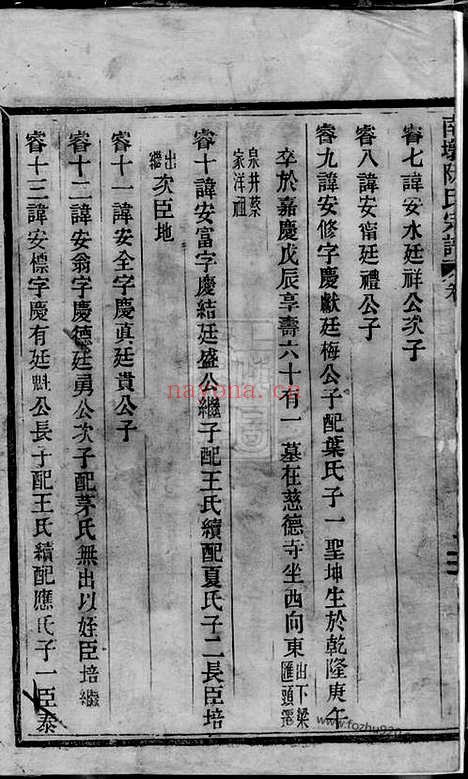 南墩陳氏宗譜 卷
睿七諱安水廷祥公次子
睿八諱安甯廷禮公子
睿九諱安修字慶獻廷梅公子配葉氏子一聖坤生於乾隆庚午
卒於嘉慶戊辰享壽六十有一墓在慈德寺坐西向東出下梁匯頭潘
泉井蔡家洋祖
睿十諱安富字慶結廷盛公繼子配王氏續配夏氏子二長臣培
出繼次臣地
睿十一諱安全字慶真廷貴公子
睿十二諱安翁字慶德廷勇公次子配茅氏無出以姪臣培繼
睿十三諱安標字慶有廷魁公長子配王氏續配應氏子一臣泰
nayona.cn
www.fozhu920.com